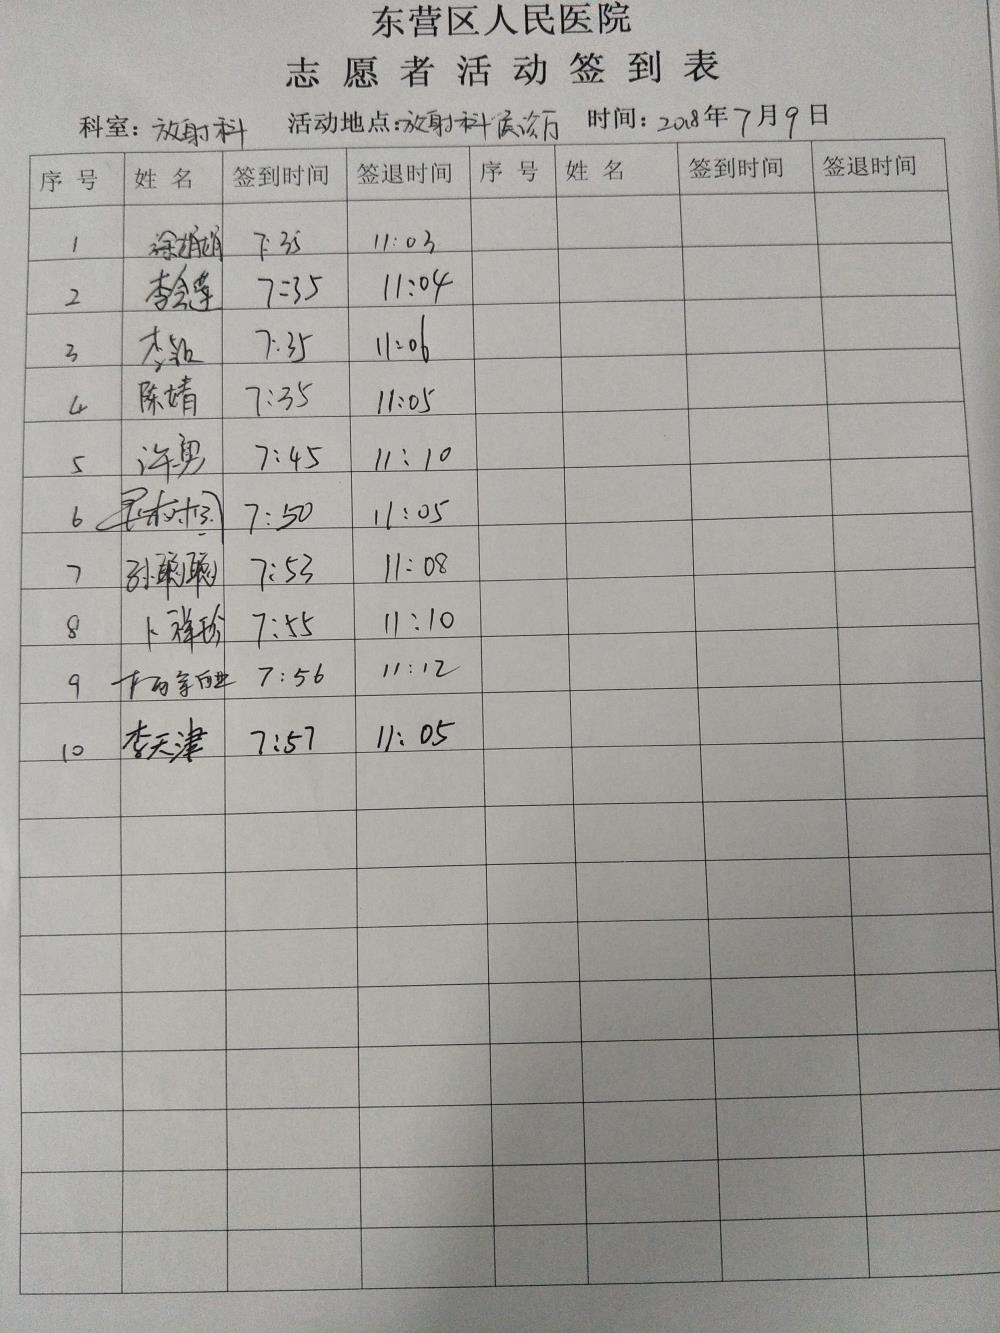 东营区人民医院
志愿者活动签到表
科室：放射科 活动地点：放射科候诊厅 时间：2018年7月9日
序号 姓名 签到时间 签退时间 序号 姓名 签到时间 签退时间
1 徐娟娟 7:35 11:03
2 李会莲 7:35 11:04
3 7:35 11:06
4 陈婧 7:35 11:05
5 许勇 7:45 11:10
6 7:50 11:05
7 孙聪聪 7:53 11:08
8 卜祥珍 7:55 11:10
9 7:56 11:12
10 李天津 7:57 11:05